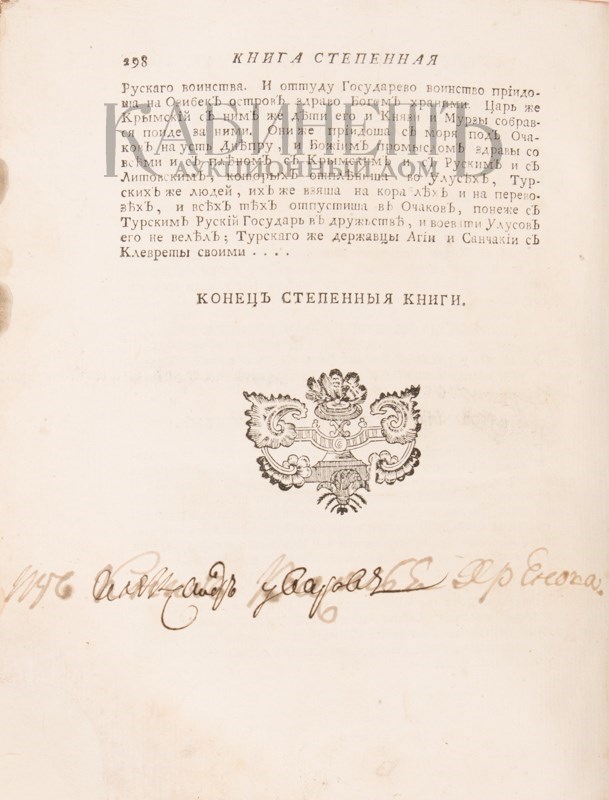 298 КНИГА СТЕПЕННАЯ
Рускаго воинства. И оттуду Государево воинство прїидо-
ша на Озибекъ островъ здраво Богомъ хранимы. Царь же
Крымскїй съ нимъ же дѣти его и Князи и Мурзы собрав-
ся поиде за ними. Они же прїидоша съ моря подъ Оча-
ковъ на усть Днѣпру, и Божїимъ промысломъ здравы со
всѣми и съ плѣномъ съ Крымскимъ и съ Рускимъ и съ
Литовскимъ, которыхъ отплѣниша во улусѣхъ, Тур-
скихъ же людей, ихъ же взяша на кораблѣхъ и на перево-
зѣхъ, и всѣхъ тѣхъ отпустиша въ Очаковъ, понеже съ
Турскимъ Рускїй Государь въ дружьствѣ, и воевати Улусовъ
его не велѣлъ; Турскаго же державцы Агїи и Санчакїи съ
Клевреты своими . . . .
КАБИНЕТЪ
АУКЦИОННЫЙ ДОМ
КОНЕЦЪ СТЕПЕННЫЯ КНИГИ.